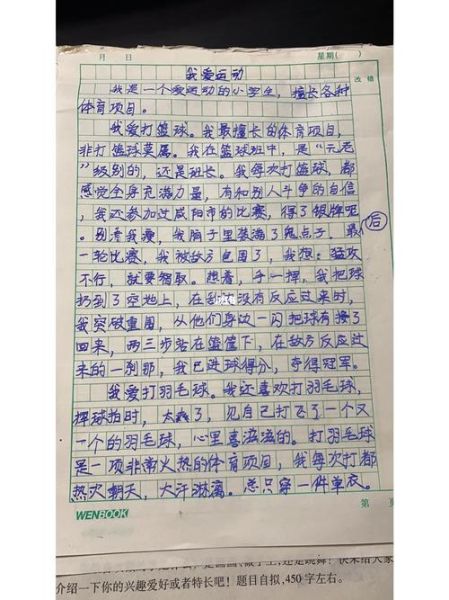 月 日 星期( )
我爱运动 改错
我是一个爱运动的小学生，擅长各种
体育项目。
我爱打篮球。我最擅长的体育项目，
非打篮球莫属。我在篮球班中，是“元老
”级别的，还是班长。我每次打篮球，都
感觉全身充满力量，有和别人斗争的自信
，我还参加过咸阳市的比赛，得了银牌呢
。别看我瘦，我脑子里装满了鬼点子，最后
一轮比赛，我被敌方包围了，我想：猛攻
不行，就要智取。想着，手一挥，我把球
扔到了空地上，在敌方没有反应过来时，
我突破重围，从他们身边一闪把球有接了
回来，两三步站在篮筐下，在敌方反应过
来的一刹那，我已进球得分，夺得冠军。
我爱打羽毛球。我还喜欢打羽毛球，
挥球拍时，太 了，见自己打飞了一个又
一个的羽毛球，心里喜滋滋的。打羽毛球
是一项非常火热的体育项目，我每次打都
热火朝天，大汗淋漓。总只穿一件单衣。
WENBOOK 第 页
介绍一下你的兴趣爱好或者特长吧！题目自拟，450字左右。